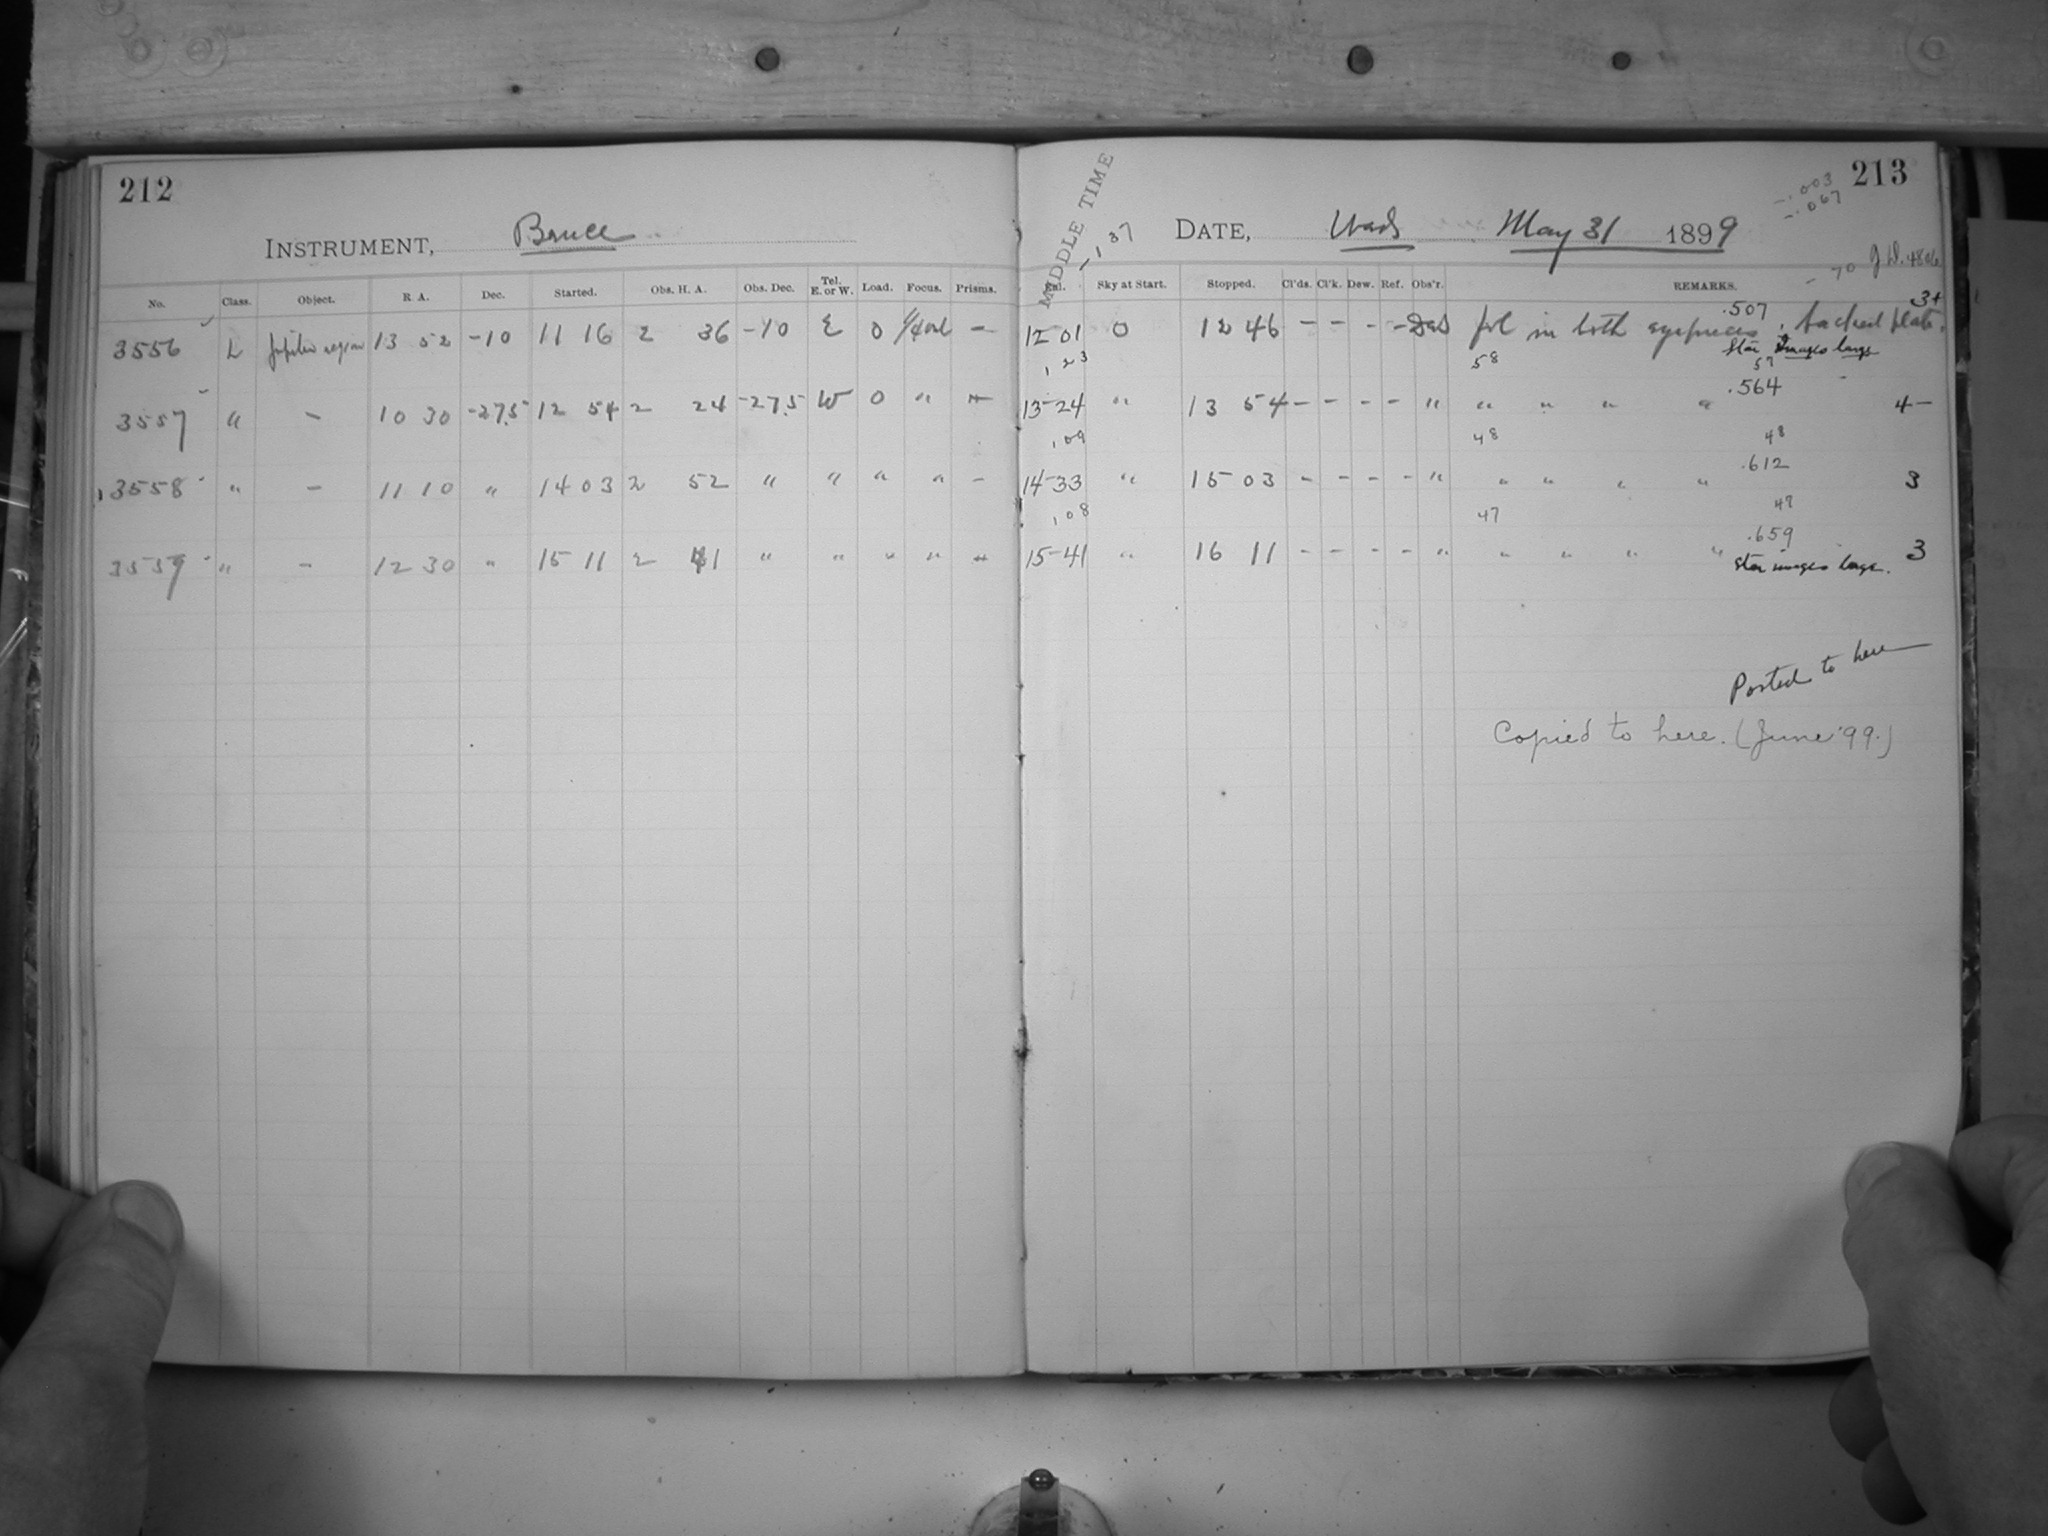 212
INSTRUMENT, Bruce
No. Class. Object. R. A. Dec. Started. Obs. H. A. Obs. Dec. Tel. E. or W. Load. Focus. Prisms.
3556 L Jupiter region 13 52 -10 11 16 2 36 -10 E 0 —
3557 " - 10 30 -27.5 12 54 2 24 -27.5 W 0 " -
3558 " - 11 10 " 14 03 2 52 " " " " -
3559 " - 12 30 " 15 11 2 41 " " " " -
213
MIDDLE TIME
-.003
-.067
-,37
DATE, Weds May 31 1899
-70 J.D. 4806
Sky at Start. Stopped. Cl'ds. Cl'k. Dew. Ref. Obs'r. REMARKS.
12-01 0 12 46 - - - - fol in both eyepieces. backed plate. .507 3+
Star images large
,23 58 57
13-24 " 13 54 - - - - " " " " " .564 4-
,09 48 48
14-33 " 15 03 - - - - " " " " " .612 3
,08 47 47
15-41 " 16 11 - - - - " " " " " .659 3
Star images large.
Posted to here
Copied to here. (June '99.)